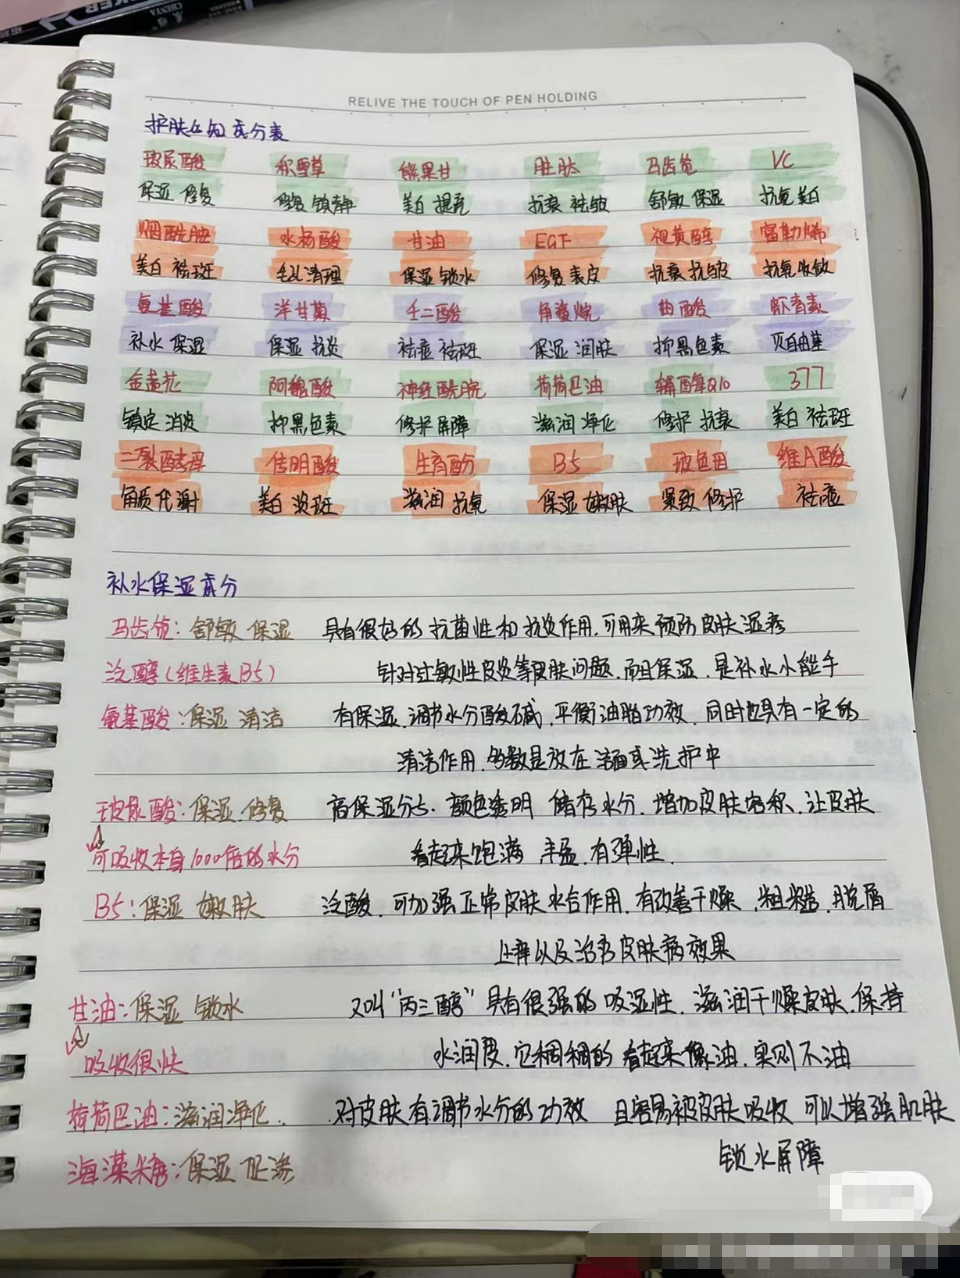 CHENYA
RELIVE THE TOUCH OF PEN HOLDING
护肤 成分表
玻尿酸 积雪草 熊果苷 胜肽 马齿苋 VC
保湿 修复 修复 镇静 美白 提亮 抗衰 祛皱 舒敏 保湿 抗氧 美白
烟酰胺 水杨酸 甘油 EGF 视黄醇 富勒烯
美白 祛斑 毛孔清理 保湿 锁水 修复表皮 抗衰 抗皱 抗氧收敛
氨基酸 洋甘菊 壬二酸 角鲨烷 曲酸 虾青素
补水 保湿 保湿 抗炎 祛痘 祛斑 保湿 润肤 抑黑色素 灭自由基
金盏花 阿魏酸 神经酰胺 荷荷巴油 辅酶Q10 377
镇定 消炎 抑黑色素 修护屏障 滋润 净化 修护 抗衰 美白 祛斑
二裂酵母 传明酸 生育酚 B5 玻色因 维A酸
角质代谢 美白 淡斑 滋润 抗氧 保湿 嫩肤 紧致 修护 祛痘
补水保湿成分
马齿苋：舒敏 保湿 具有很好的抗菌性和抗炎作用,可用来预防皮肤湿疹
泛醇(维生素B5) 针对过敏性皮炎等皮肤问题,而且保湿,是补水小能手
氨基酸：保湿 清洁 有保湿,调节水分酸碱,平衡油脂功效,同时也具有一定的
清洁作用,多数是放在洁面或洗护中
玻尿酸：保湿.修复 高保湿分子.颜色透明 储存水分,增加皮肤容积,让皮肤
可吸收本身1000倍的水分 看起来饱满 丰盈,有弹性.
B5：保湿 嫩肤 泛酸,可加强正常皮肤水合作用,有改善干燥,粗糙,脱屑
止痒以及治疗皮肤病效果
甘油：保湿 锁水 又叫“丙三醇”具有很强的吸湿性,滋润干燥皮肤,保持
吸收很快 水润度,它稠稠的看起来像油,实则不油
荷荷巴油：滋润净化. 对皮肤有调节水分的功效 且容易被皮肤吸收 可以增强肌肤
锁水屏障
海藻糖：保湿